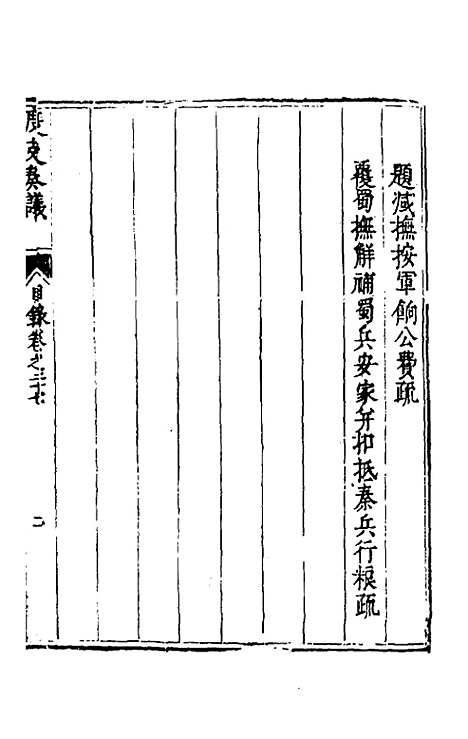 題減撫按軍餉公費疏
覆蜀撫解補蜀兵安家并扣抵秦兵行粮疏
度支奏議
目錄卷之三十七
二